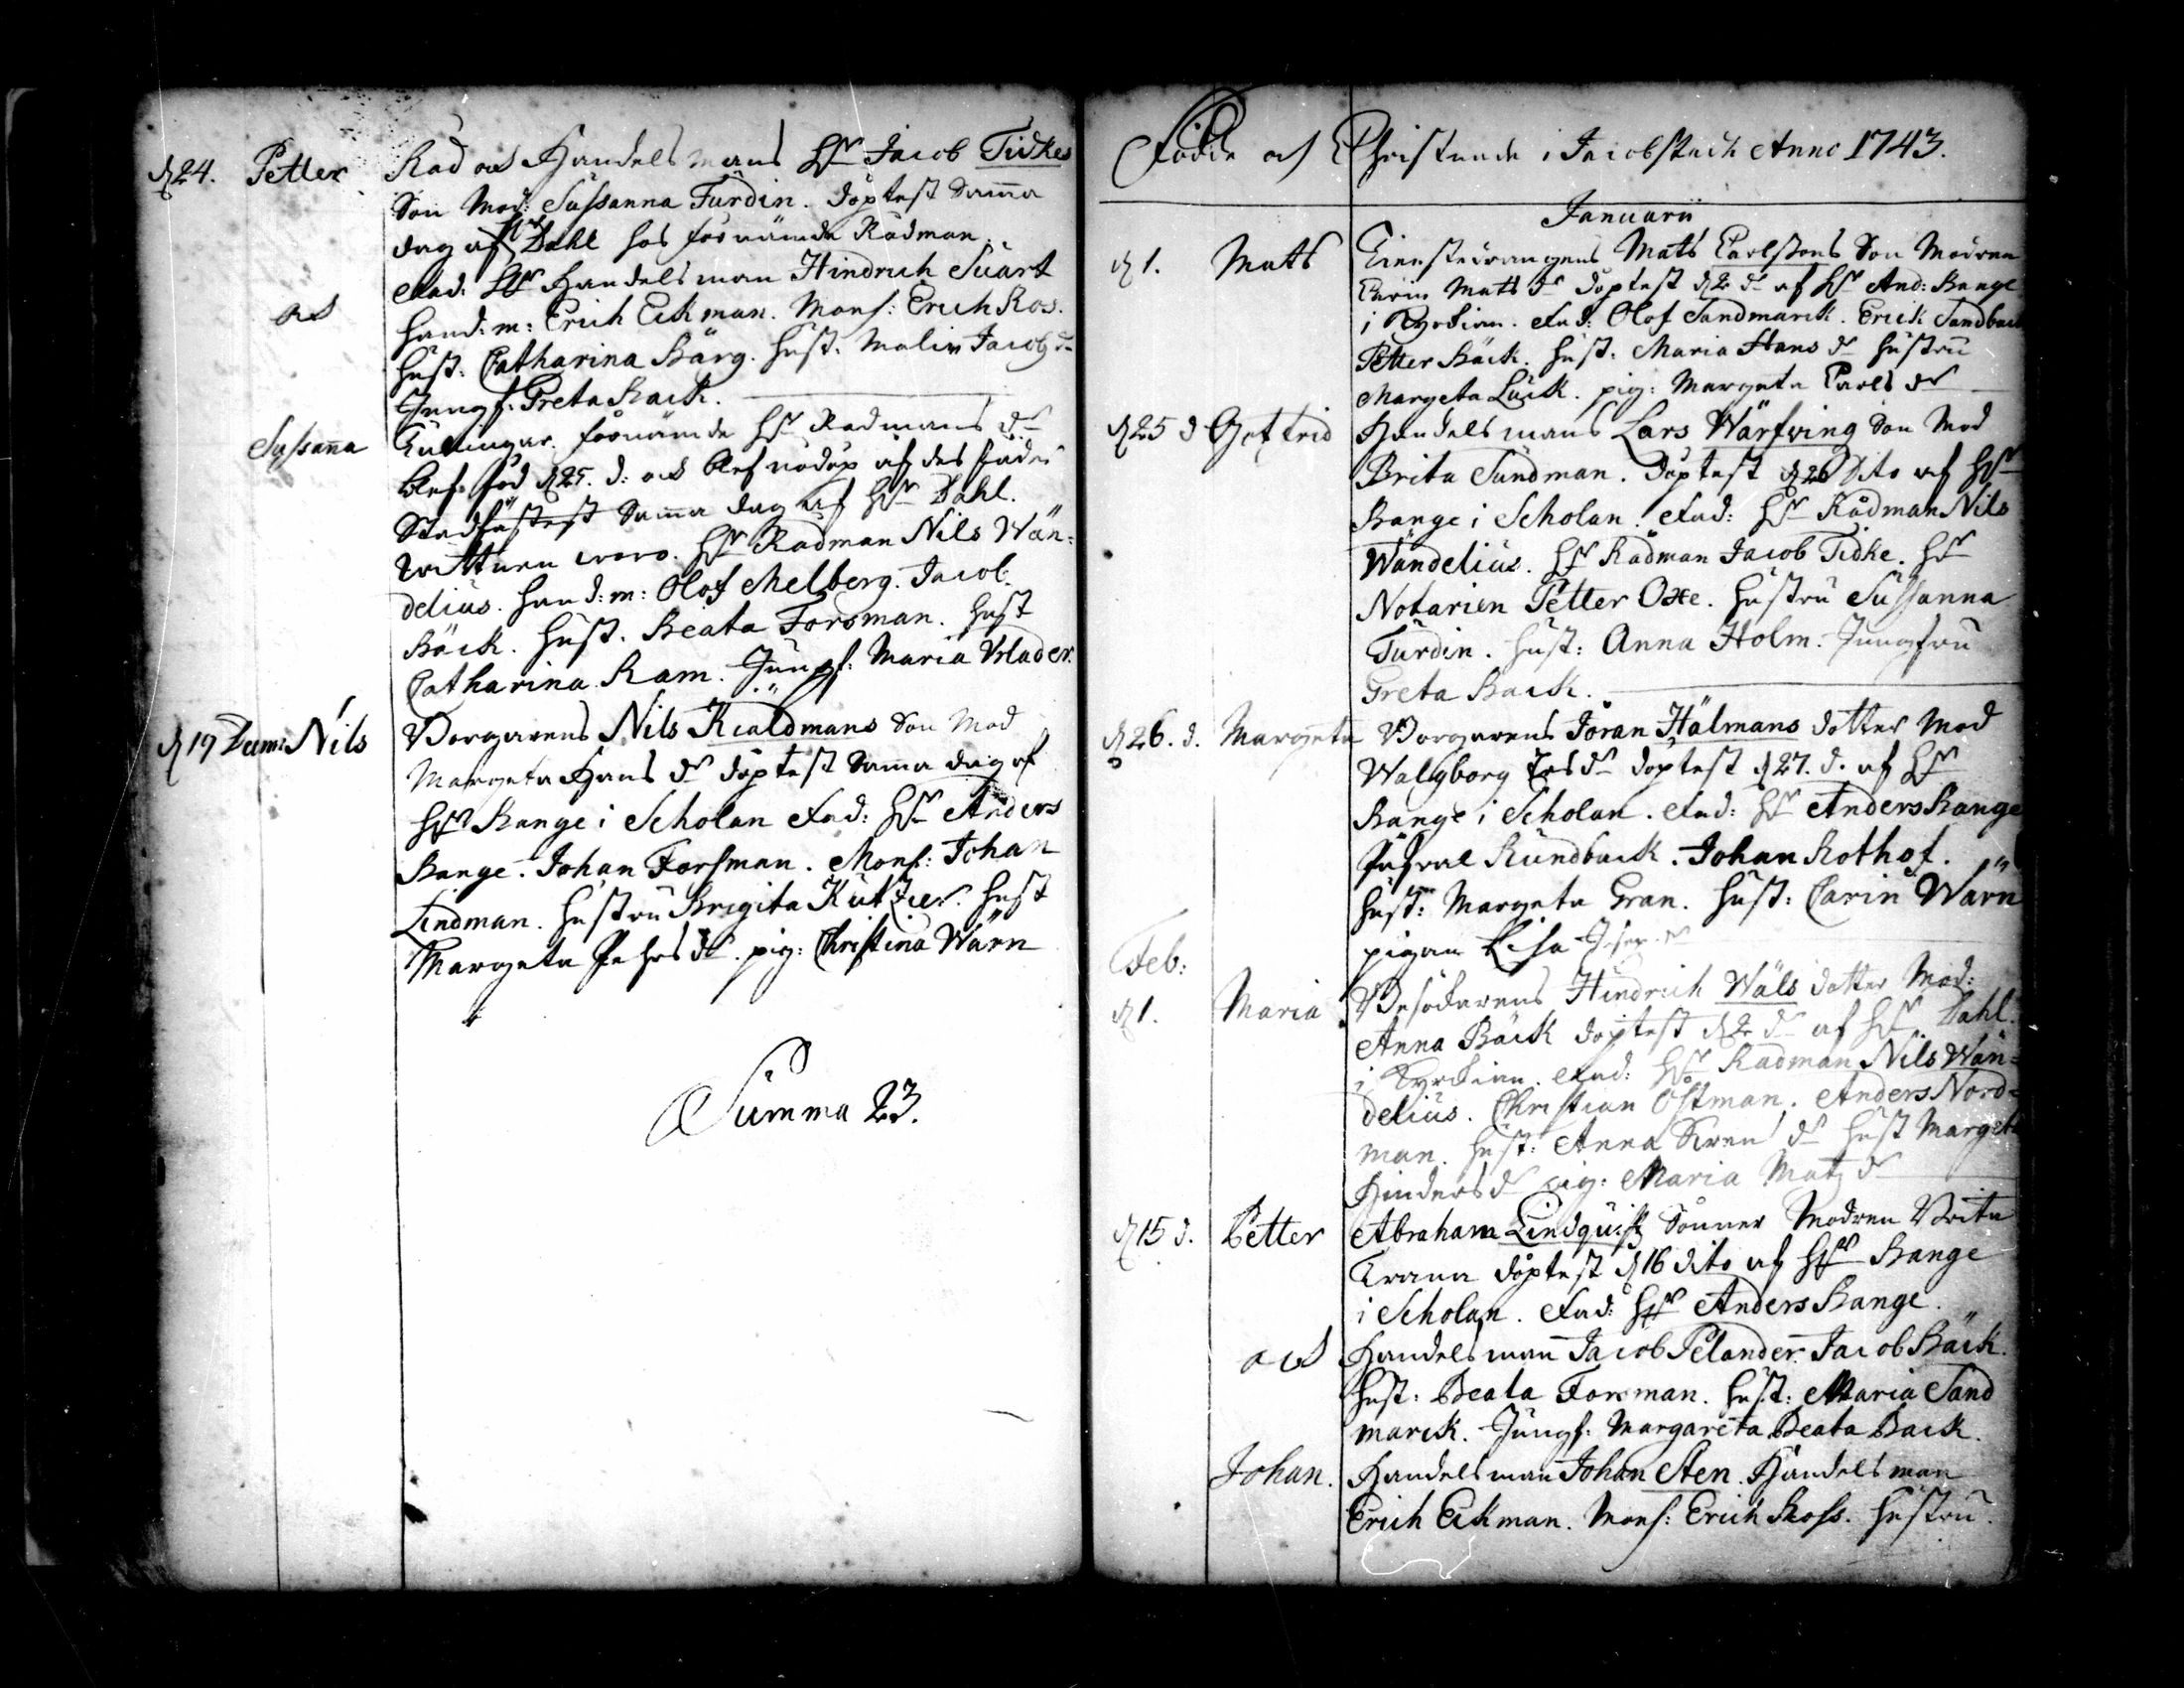 d 24. Petter Råd och Handelsmans Hr Jacob Tidkes
Son Mod: Sussanna Turdin. döptest Samma
dag af Hr Dahl hos förnämde Rådman.
Fad: Hr Handelsman Hindrich Suart
och hand: m: Erich Eckman. Mons: Erich Ros.
hust: Catharina Bärg. hust. Malin Jacobs dr
Jungf: Greta Back.
Sussana Tvilingar. förnämde Hr Radmans dr
blef föd d 25. d: och blef nödöp af des fader
Stadfästest Samma dag af Hr Dahl.
Wittnen woro. Hr Radman Nils Wän=
delius. hand: m: Olof Melberg. Jacob
Bäck. hust. Beata Forsman. hust
Catharina Ram. Jungf: Maria
d 19 Decem: Nils Borgarens Nils Kialdmans Son Mod
Margeta Hans dr döptest Samma dag af
Hr Bange i Scholan Fad: Hr Anders
Bange. Johan Forsman. Mons: Johan
Lindman. hustru Brigita Kutzier. hust
Margeta Pehrs dr. pig: Christina Wärn
Summa 23.
Födde och Christnade i Jacobstadh Anno 1743.
Januarii
d 1. Mats Tienstedrängens Mats Carlssons Son Modren
Carin Mats dr döptest d 2 do af Hr And: Bange
i Kyrckian. Fad: Olof Sandmarck. Erick Sandback
Petter Bäck. hust. Maria Hans dr hustru
Margeta Lück. pig: Margeta Carls dr
d 25 d Gottrid Handelsmans Lars Wärfwing Son Mod
Brita Sundman. döptest d 26 Dito af Hr
Bange i Scholan. Fad: Hr Rådman Nils
Wändelius. Hr Rådman Jacob Tidke. Hr
Notarien Petter Oxe. hustru Sussanna
Turdin. hust: Anna Holm. Jungfru
Greta Back.
d 26. d. Margeta Borgarens Jöran Hälmans dotter Mod
Walgborg Ers dr doptest d 27. d. af Hr
Bange i Scholan. Fad: Hr Anders Bange
Rundback. Johan Rothof.
hust: Margeta Gran. hust: Carin Wärn
pigan Lisa
Feb:
d 1. Maria Besökarens Hindrich Wäls dotter Mod:
Anna Bäck doptest d 2 do af Hr Dahl.
i Kyrckian. Fad: Hr Radman Nils Wän=
delius. Christian Östman. Anders Nord=
man. hust: Anna Swens dr hust Margeta
Hinders dr pig: Maria Matz dr
d 15 d. Petter Abraham Lindquist Sönner Modren Brita
Krana döptest d 16 dito af Hr Bange
i Scholan. Fad: Hr Anders Bange.
och Handelsman Jacob Pelander. Jacob Bäck.
hust: Beata Forsman. hust: Maria Sand
marck. Jungf: Margareta Beata Back.
Johan. Handelsman Johan Sten. Handelsman
Erich Eckman. Mons: Erich Ross. hustru